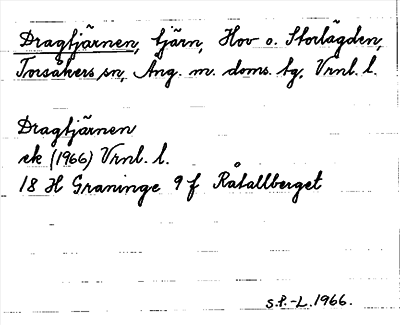 Dragtjärnen, tjärn, Hov o. Storlägden,
Torsåkers sn, Ång. m. doms. tg, Vrnl. l.
Dragtjärnen
ek (1966) Vrnl. l.
18 H Graninge 9 f Råtallberget
S.P.-L. 1966.